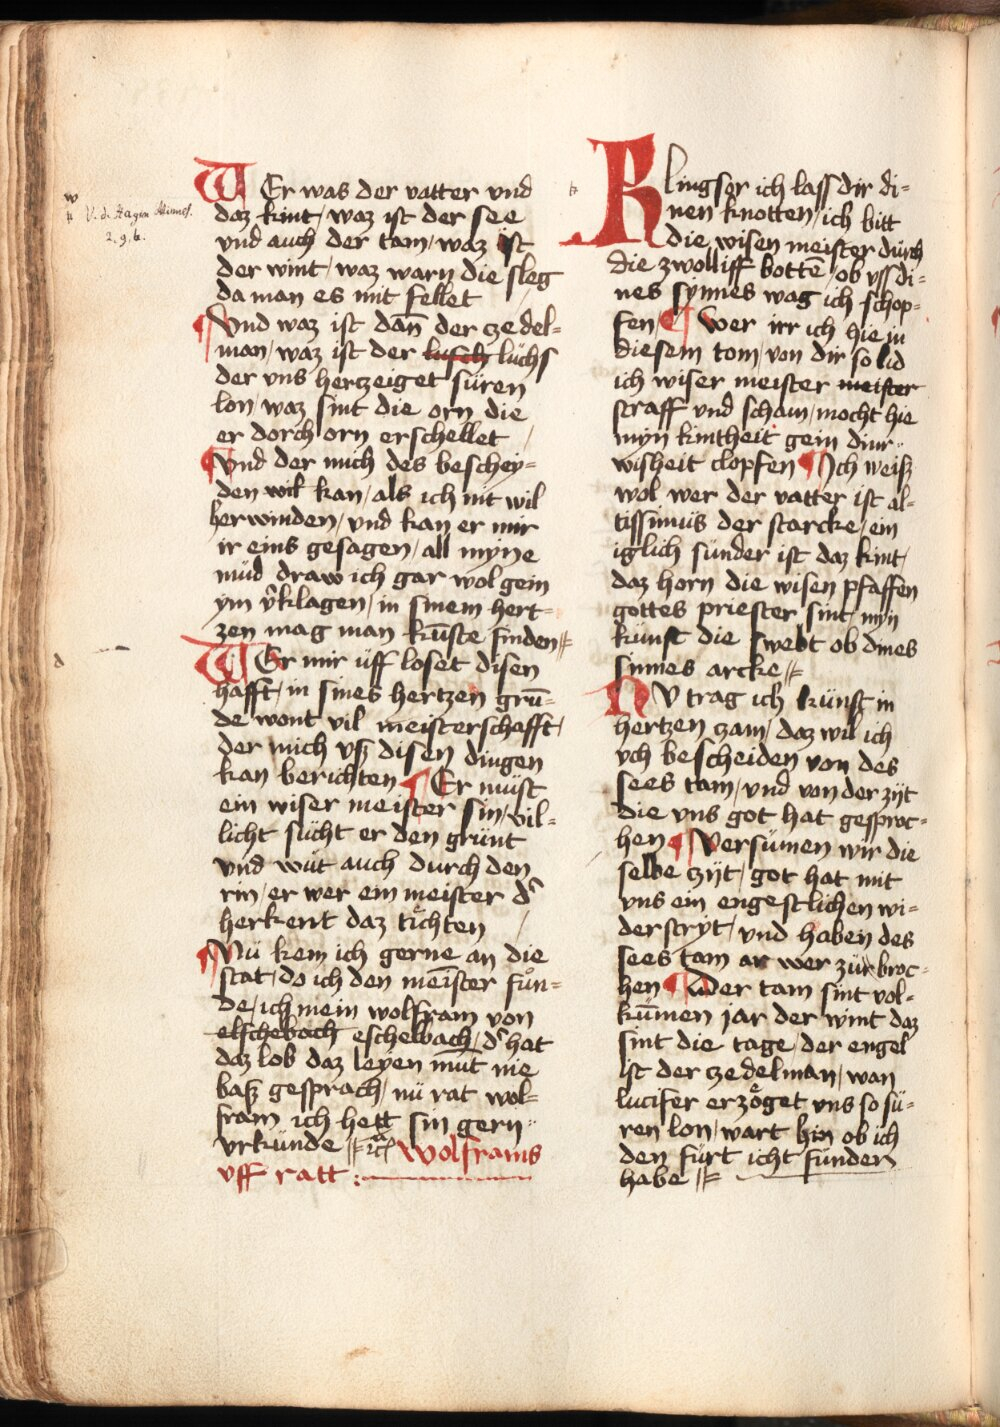 V. d. Hagen Minnes.
2. 9. b.
WEr was der vatter vnd
daz kint / waz ist der see
vnd auch der tam / waz ist
der wint / waz warn die sleg
da man es mit fellet
Vnd waz ist dan̄ der czedel=
man / waz ist der lusch lüchs
der vns hertzeiget süren
lon / waz sint die orn die
er dorch orn erschellet
Vnd der mich des beschey=
den wil kan / als ich nit wil
herwinden / vnd kan er mir
ir eins gesagen / all myne
müd draw ich gar wol gein
ym v̄klagen / in sinem hert=
zen mag man kūste finden
WEr mir üff loset disen
hafft / in sines hertzen grū=
de wont vil meisterschafft /
der mich vß disen dingen
kan berichten Er müst
ein wiser meister sin / vil=
licht sücht er den grünt
vnd wüt auch durch den
rin / er wer ein meister d̄
herkent daz tichten
Nü kem ich gerne an die
stat / do ich den meister fün=
de / ich mein wolfram von
elschebach eschelbach / d̄ hat
daz lob daz leyen müt nie
baß gesprach / nü rat wol=
fram ich hett sin gern
vrkünde Wolframs
vff ratt :
KLingsor ich lass dir di=
nen knotten / ich bitt
die wisen meister dürch
die zwolliff bottē / ob vss di=
nes synnes wag ich schop=
fen Wer irr ich hie in
diesem tom / von dir so lid
ich wiser meister meister
straff vnd scham / mocht hie
myn kintheit gein diner
wisheit clopfen Ich weiß
wol wer der vatter ist al=
tissimüs der starcke / ein
iglich sünder ist daz kint /
daz horn die wisen pfaffen
gottes priester sint / myn
künst die swebt ob dines
sinnes arcke
NV trag ich künst in
hertzen zam / daz wil ich
vch bescheiden von des
sees tam / vnd von der zyt
die vns got hat gesproc=
hen Versümen wir die
selbe zyt / got hat mit
vns ein engestlichen wi=
derstryt / vnd haben des
sees tam ar wer zür broc=
hen Der tam sint vol=
kūmen jar der wint daz
sint die tage / der engel
ist der czedelman / wan
lucifer erzöget vns so sü=
ren lon / wart hin ob ich
den fürt icht fünden
habe